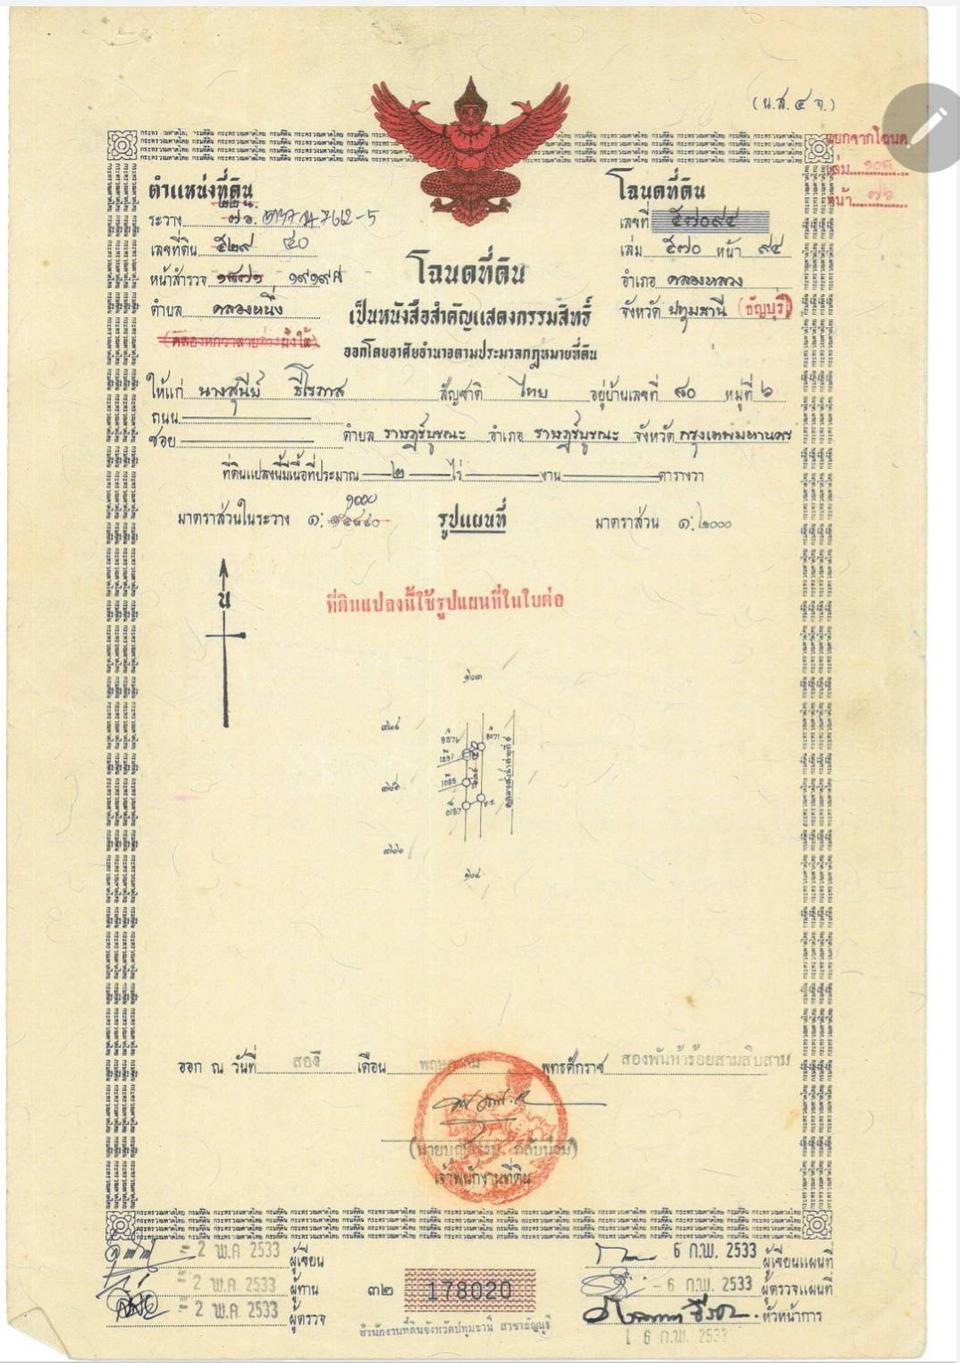 (น.ส.๔ จ.)
แยกจากโฉนด
เล่ม ๑๐๓
หน้า ๗๖
ตำแหน่งที่ดิน
ระวาง ๗๖ 7612-5
เลขที่ดิน ๕๒๙ ๔๐
หน้าสำรวจ ๑๙๑๙๕
ตำบล คลองหนึ่ง
โฉนดที่ดิน
เลขที่ ๕๗๐๙๔
เล่ม ๕๗๐ หน้า ๙๔
อำเภอ คลองหลวง
จังหวัด ปทุมธานี (ธัญบุรี)
โฉนดที่ดิน
เป็นหนังสือสำคัญแสดงกรรมสิทธิ์
ออกโดยอาศัยอำนาจตามประมวลกฎหมายที่ดิน
ให้แก่ นางสุนีย์ ธีโรภาส สัญชาติ ไทย อยู่บ้านเลขที่ ๘๐ หมู่ที่ ๖
ถนน
ซอย ตำบล ราษฎร์บูรณะ อำเภอ ราษฎร์บูรณะ จังหวัด กรุงเทพมหานคร
ที่ดินแปลงนี้มีเนื้อที่ประมาณ ๒ ไร่ งาน ตารางวา
มาตราส่วนในระวาง ๑: ๑๐๐๐
รูปแผนที่
มาตราส่วน ๑: ๒๐๐๐
น
ที่ดินแปลงนี้ใช้รูปแผนที่ในใบต่อ
๑๐๓
๑๐๔
ออก ณ วันที่ สอง เดือน พฤษภาคม พุทธศักราช สองพันห้าร้อยสามสิบสาม
เจ้าพนักงานที่ดิน
2 พ.ค 2533 ผู้เขียน
2 พ.ค 2533 ผู้ทาน
2 พ.ค 2533 ผู้ตรวจ
๓๒ 178020
สำนักงานที่ดินจังหวัดปทุมธานี สาขาธัญบุรี
6 ก.พ. 2533 ผู้เขียนแผนที่
6 ก.พ. 2533 ผู้ตรวจแผนที่
หัวหน้าการ
6 ก.พ. 2533